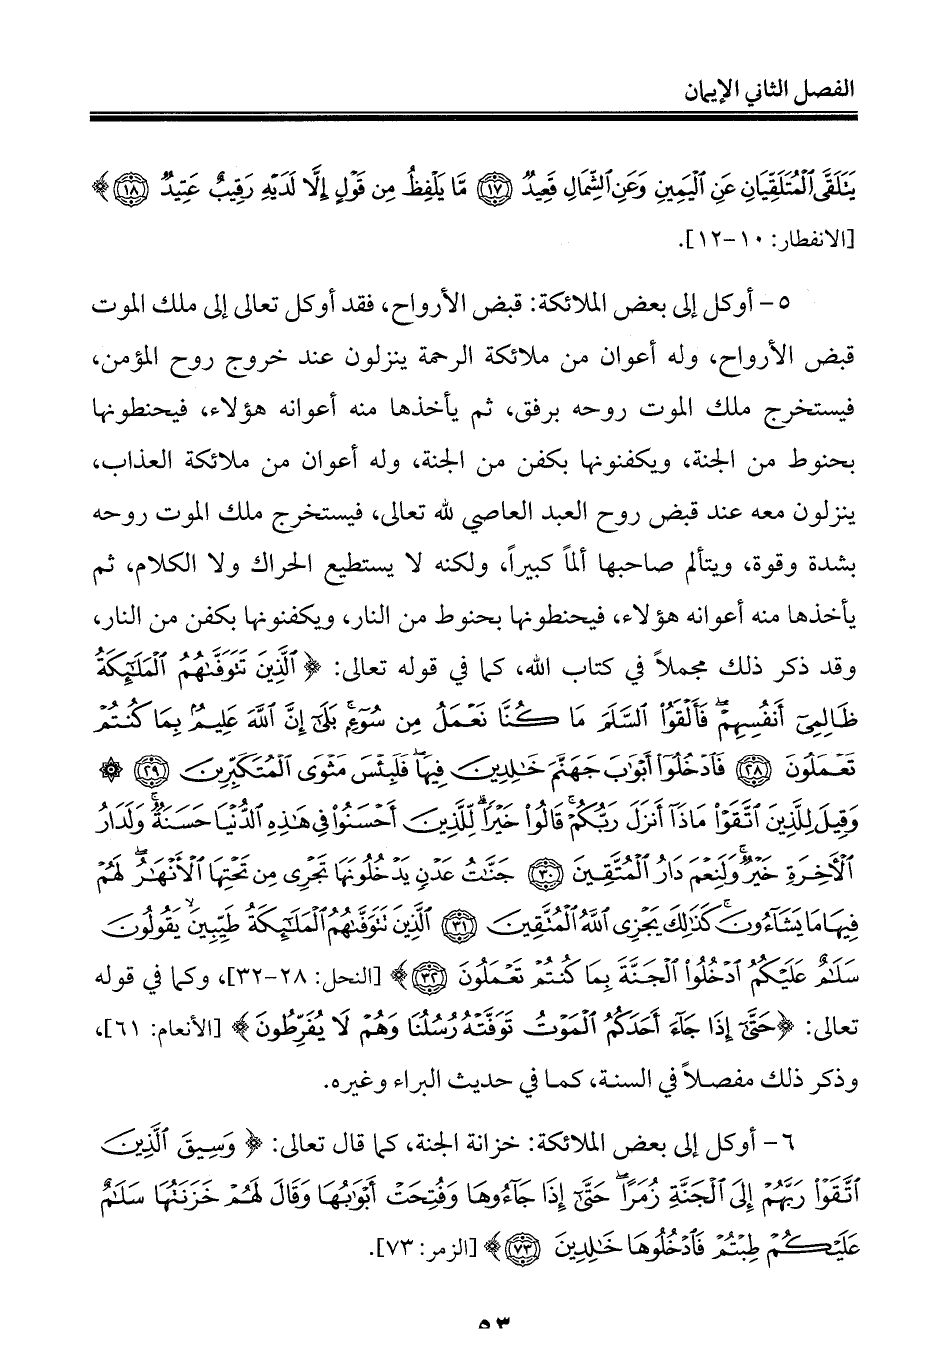 الفصل الثاني الإيمان
يَتَلَقَّى ٱلْمُتَلَقِّيَانِ عَنِ ٱلْيَمِينِ وَعَنِ ٱلشِّمَالِ قَعِيدٌ ۝١٧ مَّا يَلْفِظُ مِن قَوْلٍ إِلَّا لَدَيْهِ رَقِيبٌ عَتِيدٌ ۝١٨ ﴾
[الانفطار: ١٠-١٢].
٥- أوكل إلى بعض الملائكة: قبض الأرواح، فقد أوكل تعالى إلى ملك الموت
قبض الأرواح، وله أعوان من ملائكة الرحمة ينزلون عند خروج روح المؤمن،
فيستخرج ملك الموت روحه برفق، ثم يأخذها منه أعوانه هؤلاء، فيحنطونها
بحنوط من الجنة، ويكفنونها بكفن من الجنة، وله أعوان من ملائكة العذاب،
ينزلون معه عند قبض روح العبد العاصي لله تعالى، فيستخرج ملك الموت روحه
بشدة وقوة، ويتألم صاحبها ألماً كبيراً، ولكنه لا يستطيع الحراك ولا الكلام، ثم
يأخذها منه أعوانه هؤلاء، فيحنطونها بحنوط من النار، ويكفنونها بكفن من النار،
وقد ذكر ذلك مجملاً في كتاب الله، كما في قوله تعالى: ﴿ ٱلَّذِينَ تَتَوَفَّىٰهُمُ ٱلْمَلَٰٓئِكَةُ
ظَالِمِىٓ أَنفُسِهِمْ ۖ فَأَلْقَوُا۟ ٱلسَّلَمَ مَا كُنَّا نَعْمَلُ مِن سُوٓءٍۭ ۚ بَلَىٰٓ إِنَّ ٱللَّهَ عَلِيمٌۢ بِمَا كُنتُمْ
تَعْمَلُونَ ۝٢٨ فَٱدْخُلُوٓا۟ أَبْوَٰبَ جَهَنَّمَ خَٰلِدِينَ فِيهَا ۖ فَلَبِئْسَ مَثْوَى ٱلْمُتَكَبِّرِينَ ۝٢٩ ۞
وَقِيلَ لِلَّذِينَ ٱتَّقَوْا۟ مَاذَآ أَنزَلَ رَبُّكُمْ ۚ قَالُوا۟ خَيْرًا ۗ لِّلَّذِينَ أَحْسَنُوا۟ فِى هَٰذِهِ ٱلدُّنْيَا حَسَنَةٌ ۚ وَلَدَارُ
ٱلْأَخِرَةِ خَيْرٌ ۚ وَلَنِعْمَ دَارُ ٱلْمُتَّقِينَ ۝٣٠ جَنَّٰتُ عَدْنٍ يَدْخُلُونَهَا تَجْرِى مِن تَحْتِهَا ٱلْأَنْهَٰرُ ۖ لَهُمْ
فِيهَا مَا يَشَآءُونَ ۚ كَذَٰلِكَ يَجْزِى ٱللَّهُ ٱلْمُتَّقِينَ ۝٣١ ٱلَّذِينَ تَتَوَفَّىٰهُمُ ٱلْمَلَٰٓئِكَةُ طَيِّبِينَ ۙ يَقُولُونَ
سَلَٰمٌ عَلَيْكُمُ ٱدْخُلُوا۟ ٱلْجَنَّةَ بِمَا كُنتُمْ تَعْمَلُونَ ۝٣٢ ﴾ [النحل: ٢٨-٣٢]، وكما في قوله
تعالى: ﴿حَتَّىٰٓ إِذَا جَآءَ أَحَدَكُمُ ٱلْمَوْتُ تَوَفَّتْهُ رُسُلُنَا وَهُمْ لَا يُفَرِّطُونَ ﴾ [الأنعام: ٦١]،
وذكر ذلك مفصلاً في السنة، كما في حديث البراء وغيره.
٦- أوكل إلى بعض الملائكة: خزانة الجنة، كما قال تعالى: ﴿ وَسِيقَ ٱلَّذِينَ
ٱتَّقَوْا۟ رَبَّهُمْ إِلَى ٱلْجَنَّةِ زُمَرًا ۖ حَتَّىٰٓ إِذَا جَآءُوهَا وَفُتِحَتْ أَبْوَٰبُهَا وَقَالَ لَهُمْ خَزَنَتُهَا سَلَٰمٌ
عَلَيْكُمْ طِبْتُمْ فَٱدْخُلُوهَا خَٰلِدِينَ ۝٧٣ ﴾ [الزمر: ٧٣].
٥٣